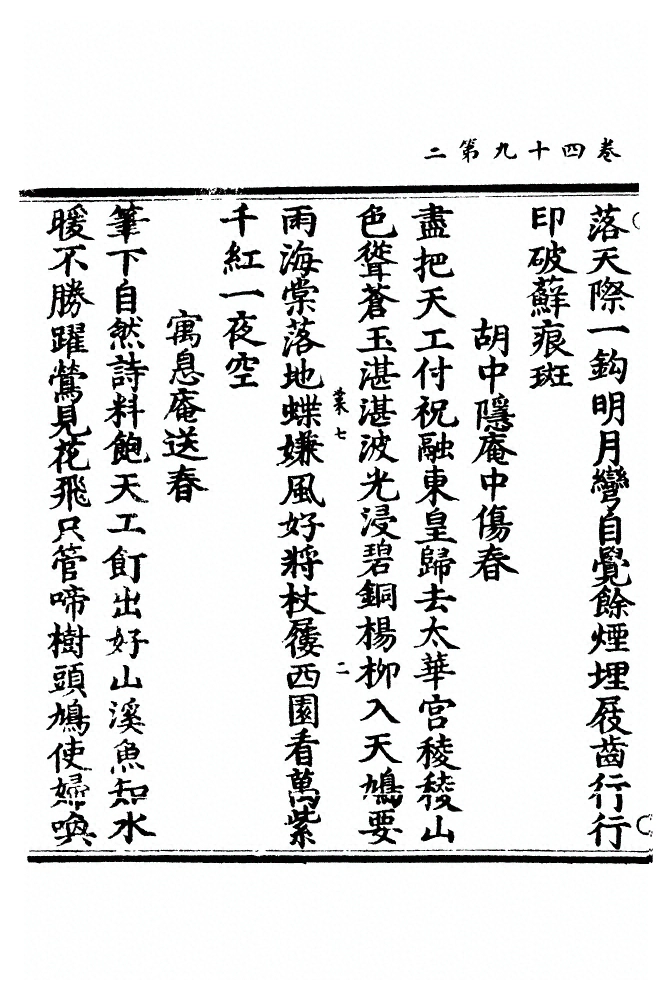 卷四十九第二
落天際一鈎明月彎自覺餘煙埋屐齒行行
印破蘚痕斑
胡中隱庵中傷春
盡把天工付祝融東皇歸去太華宮稜稜山
色聳蒼玉湛湛波光浸碧銅楊柳入天鳩要
葉七
二
雨海棠落地蝶嫌風好將杖屨西園看萬紫
千紅一夜空
寓息庵送春
筆下自然詩料飽天工飣出好山溪魚知水
暖不勝躍鶯見花飛只管啼樹頭鳩使婦喚